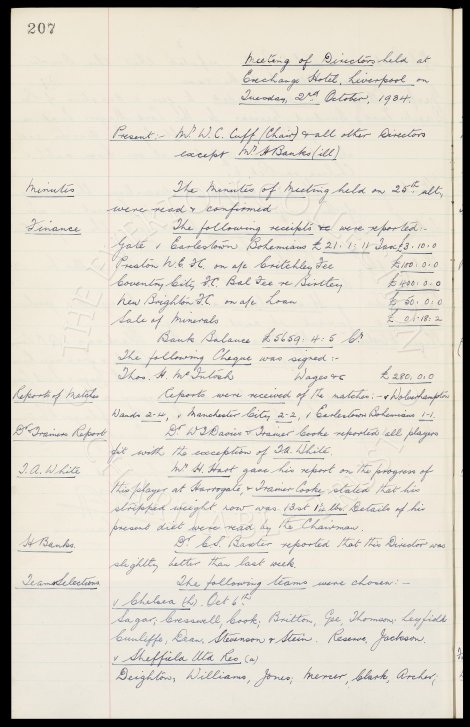 207
Meeting of Directors held at
Exchange Hotel, Liverpool on
Tuesday, 2nd October, 1934.
Present:- Mr W.C. Cuff (Chair) & all other Directors
except Mr H Banks (ill)
Minutes The Minutes of Meeting held on 25th ult.
were read & confirmed
Finance The following receipts &c were reported:-
Gate v Earlestown Bohemians £21:1:11 £3.10.0
Preston N.E. F.C. on a/c Critchley Fee £100:0:0
Coventry City F.C. Bal Fee re Birtley £400:0:0
New Brighton F.C. on a/c Loan £50:0:0
Sale of Minerals £0:18:2
Bank Balance £5659:4:5 Cr
The following Cheque was signed:-
Thos. H. McIntosh Wages &c £280.0.0
Reports of Matches Reports were received of the matches:- v Wolverhampton
Wands 2-4, v Manchester City, 2-2, v Earlestown Bohemians 1-1.
Dr & Trainers Report Dr W.J. Davies & Trainer Cooke reported all players
fit with the exception of T.A. White.
T.A. White Mr H. Hart gave his report on the progress of
this player at Harrogate & Trainer Cooke, stated that his
stripped weight now was 13st 1½ lbs. Details of his
present diet were read by the Chairman.
H Banks. Dr C.S. Baxter reported that this Director was
slightly better than last week.
Team Selections The following teams were chosen:-
v Chelsea (h). Oct 6th
Sagar; Cresswell, Cook; Britton, Gee, Thomson; Leyfield
Cunliffe, Dean, Stevenson & Stein. Reserve, Jackson.
v Sheffield Utd Res. (a)
Deighton, Williams, Jones; Mercer, Clark, Archer;